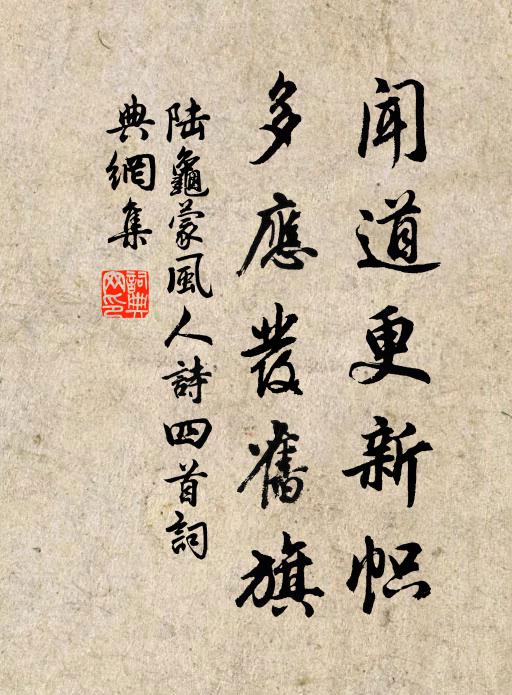 闻道更新帜
多應發舊旗
陆龜蒙風人詩四首詞
典網集
詞典網印